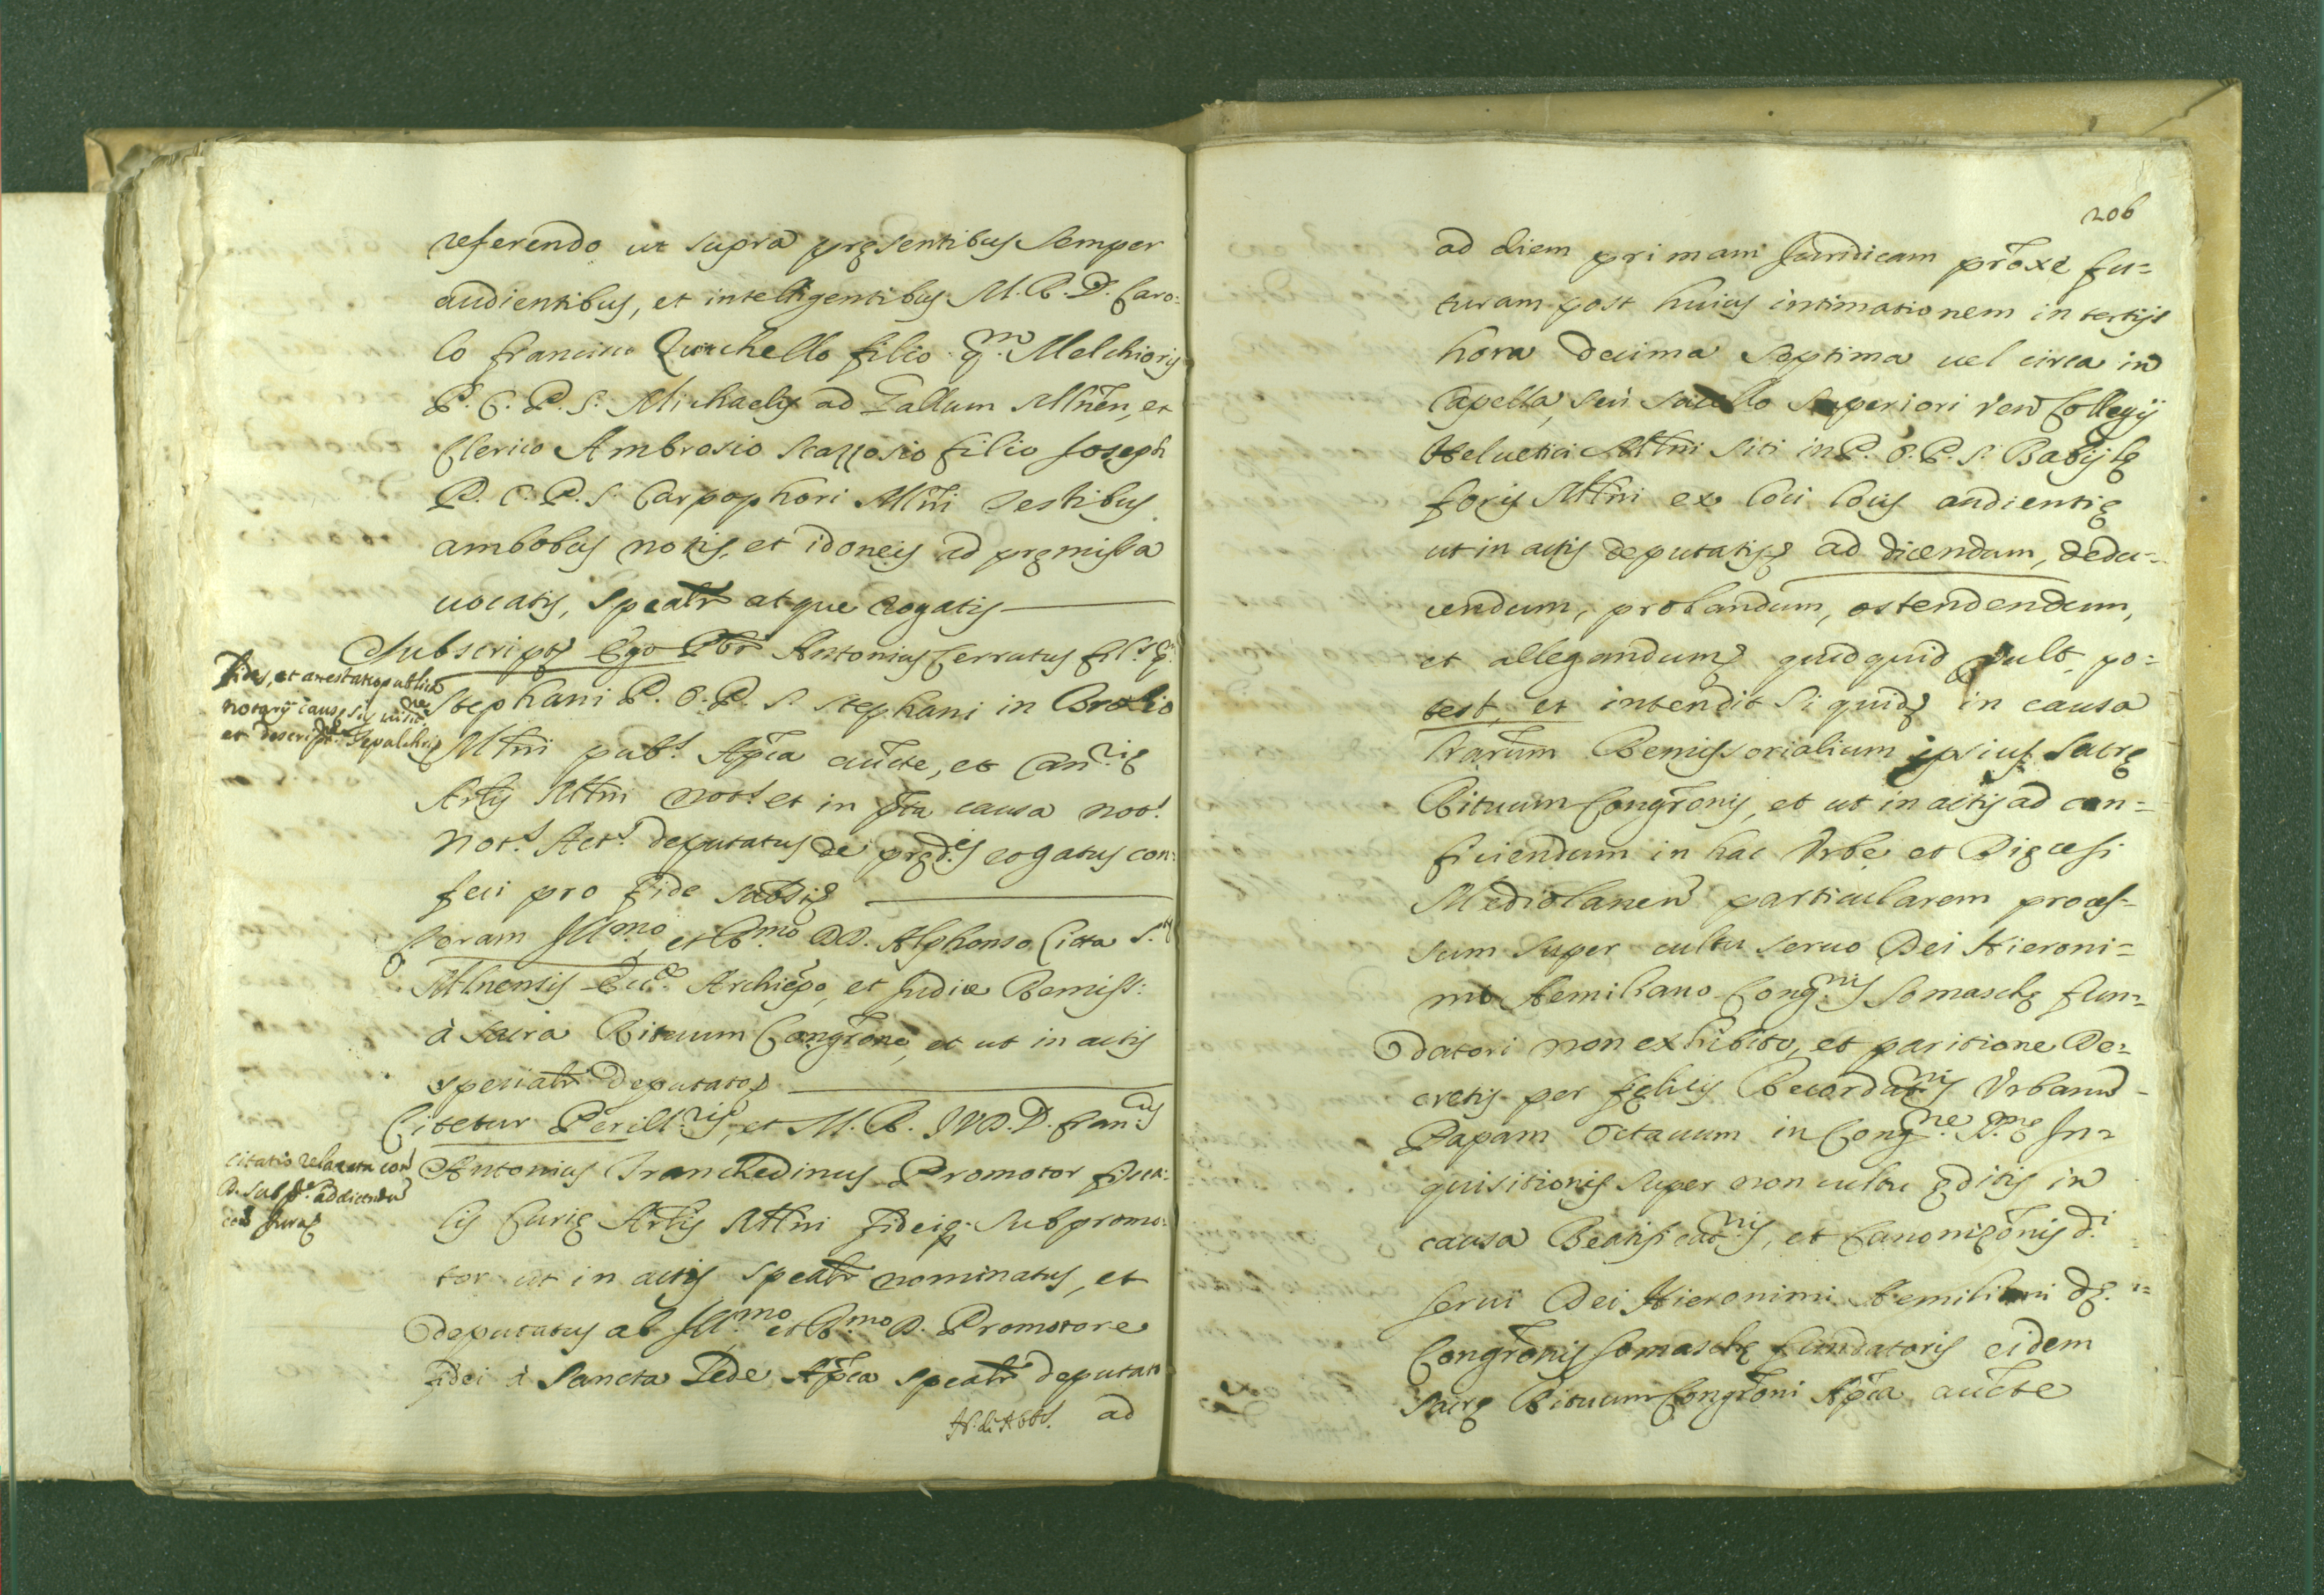 referendo ut supra pręsentibus semper
audientibus, et intelligentibus M. R. D. Caro:
lo Francisco Zucchello filio q.m Melchioris
P. O. P. S. Michaelis ad Gallum Mlnẽn, et
Clerico Ambrosio Scazzosio filio Joseph
P. O. P. S. Carpophori Mlni testibus
ambobus notis, et idoneis ad pręmissa
uocatis, spealr atque rogatis
Subscript. Ego Pbr Antonius Cerrutus fil.s q.
Stephani P. O. P. S. Stephani in Brolio
Mlni pub.s Apca aucte, et Can.rię
Arlis Mlni not.s et in pta causa not.s
Not.s Act.s deputatus de pręd.is rogatus con:
feci pro fide
Fides, et attestatio publica
notarij causę
et descript. Sepulchri
Coram Ill.mo, et R.mo DD. Alphonso Litta S.
Mlnensis Eccl. Archiepo, et Judice Remiss:
à Sacra Rituum Congrone, et ut in actis
specialr deputato
Citetur Perill.ris, et M. R. IVD. D. Fran.us
Antonius Tranchedinus Promotor fisca:
lis Curię Arlis Mlni fideiq. subpromo:
tor ut in actis spealr nominatus, et
deputatus ab Ill.mo et R.mo D. Promotore
fidei à Sancta Sede Apca spealr deputato
ad
citatio relaxata con
D. Subp. ad dicendu
con Juras
206
ad diem primam Juridicam proxe fu=
turam post huius intimationem in tertijs
hora decima septima uel circa in
Capella, seu sacello superiori Ven Collegij
Heluetici Mlni siti in P. O. P. S. Babylę
foris Mlni ex loci locis audientię
ut in actis deputatis ad dicendum, dedu=
cendum, probandum, ostendendum,
et allegandum quidquid vult, po=
test, et intendit si quid in causa
lrarum Remissorialium ipsius Sacrę
Rituum Congronis, et ut in actis ad con=
ficiendum in hac Vrbe et Dięcesi
Mediolanen particularem proces=
sum super cultu seruo Dei Hieroni=
mo Aemiliano Cong.nis Somaschę fun=
datori non exhibito, et paritione De=
cretis per fęlicis Recordat.nis Vrbanu
Papam Octauum in Cong.ne S.mę In=
quisitionis super non cultu ęditis in
causa Beatificat.nis, et Canonizõnis d.i
serui Dei Hieronimi Aemiliani dę.
Congronis Somaschę fundatoris eidem
Sacrę Rituum Congroni Apca aucte